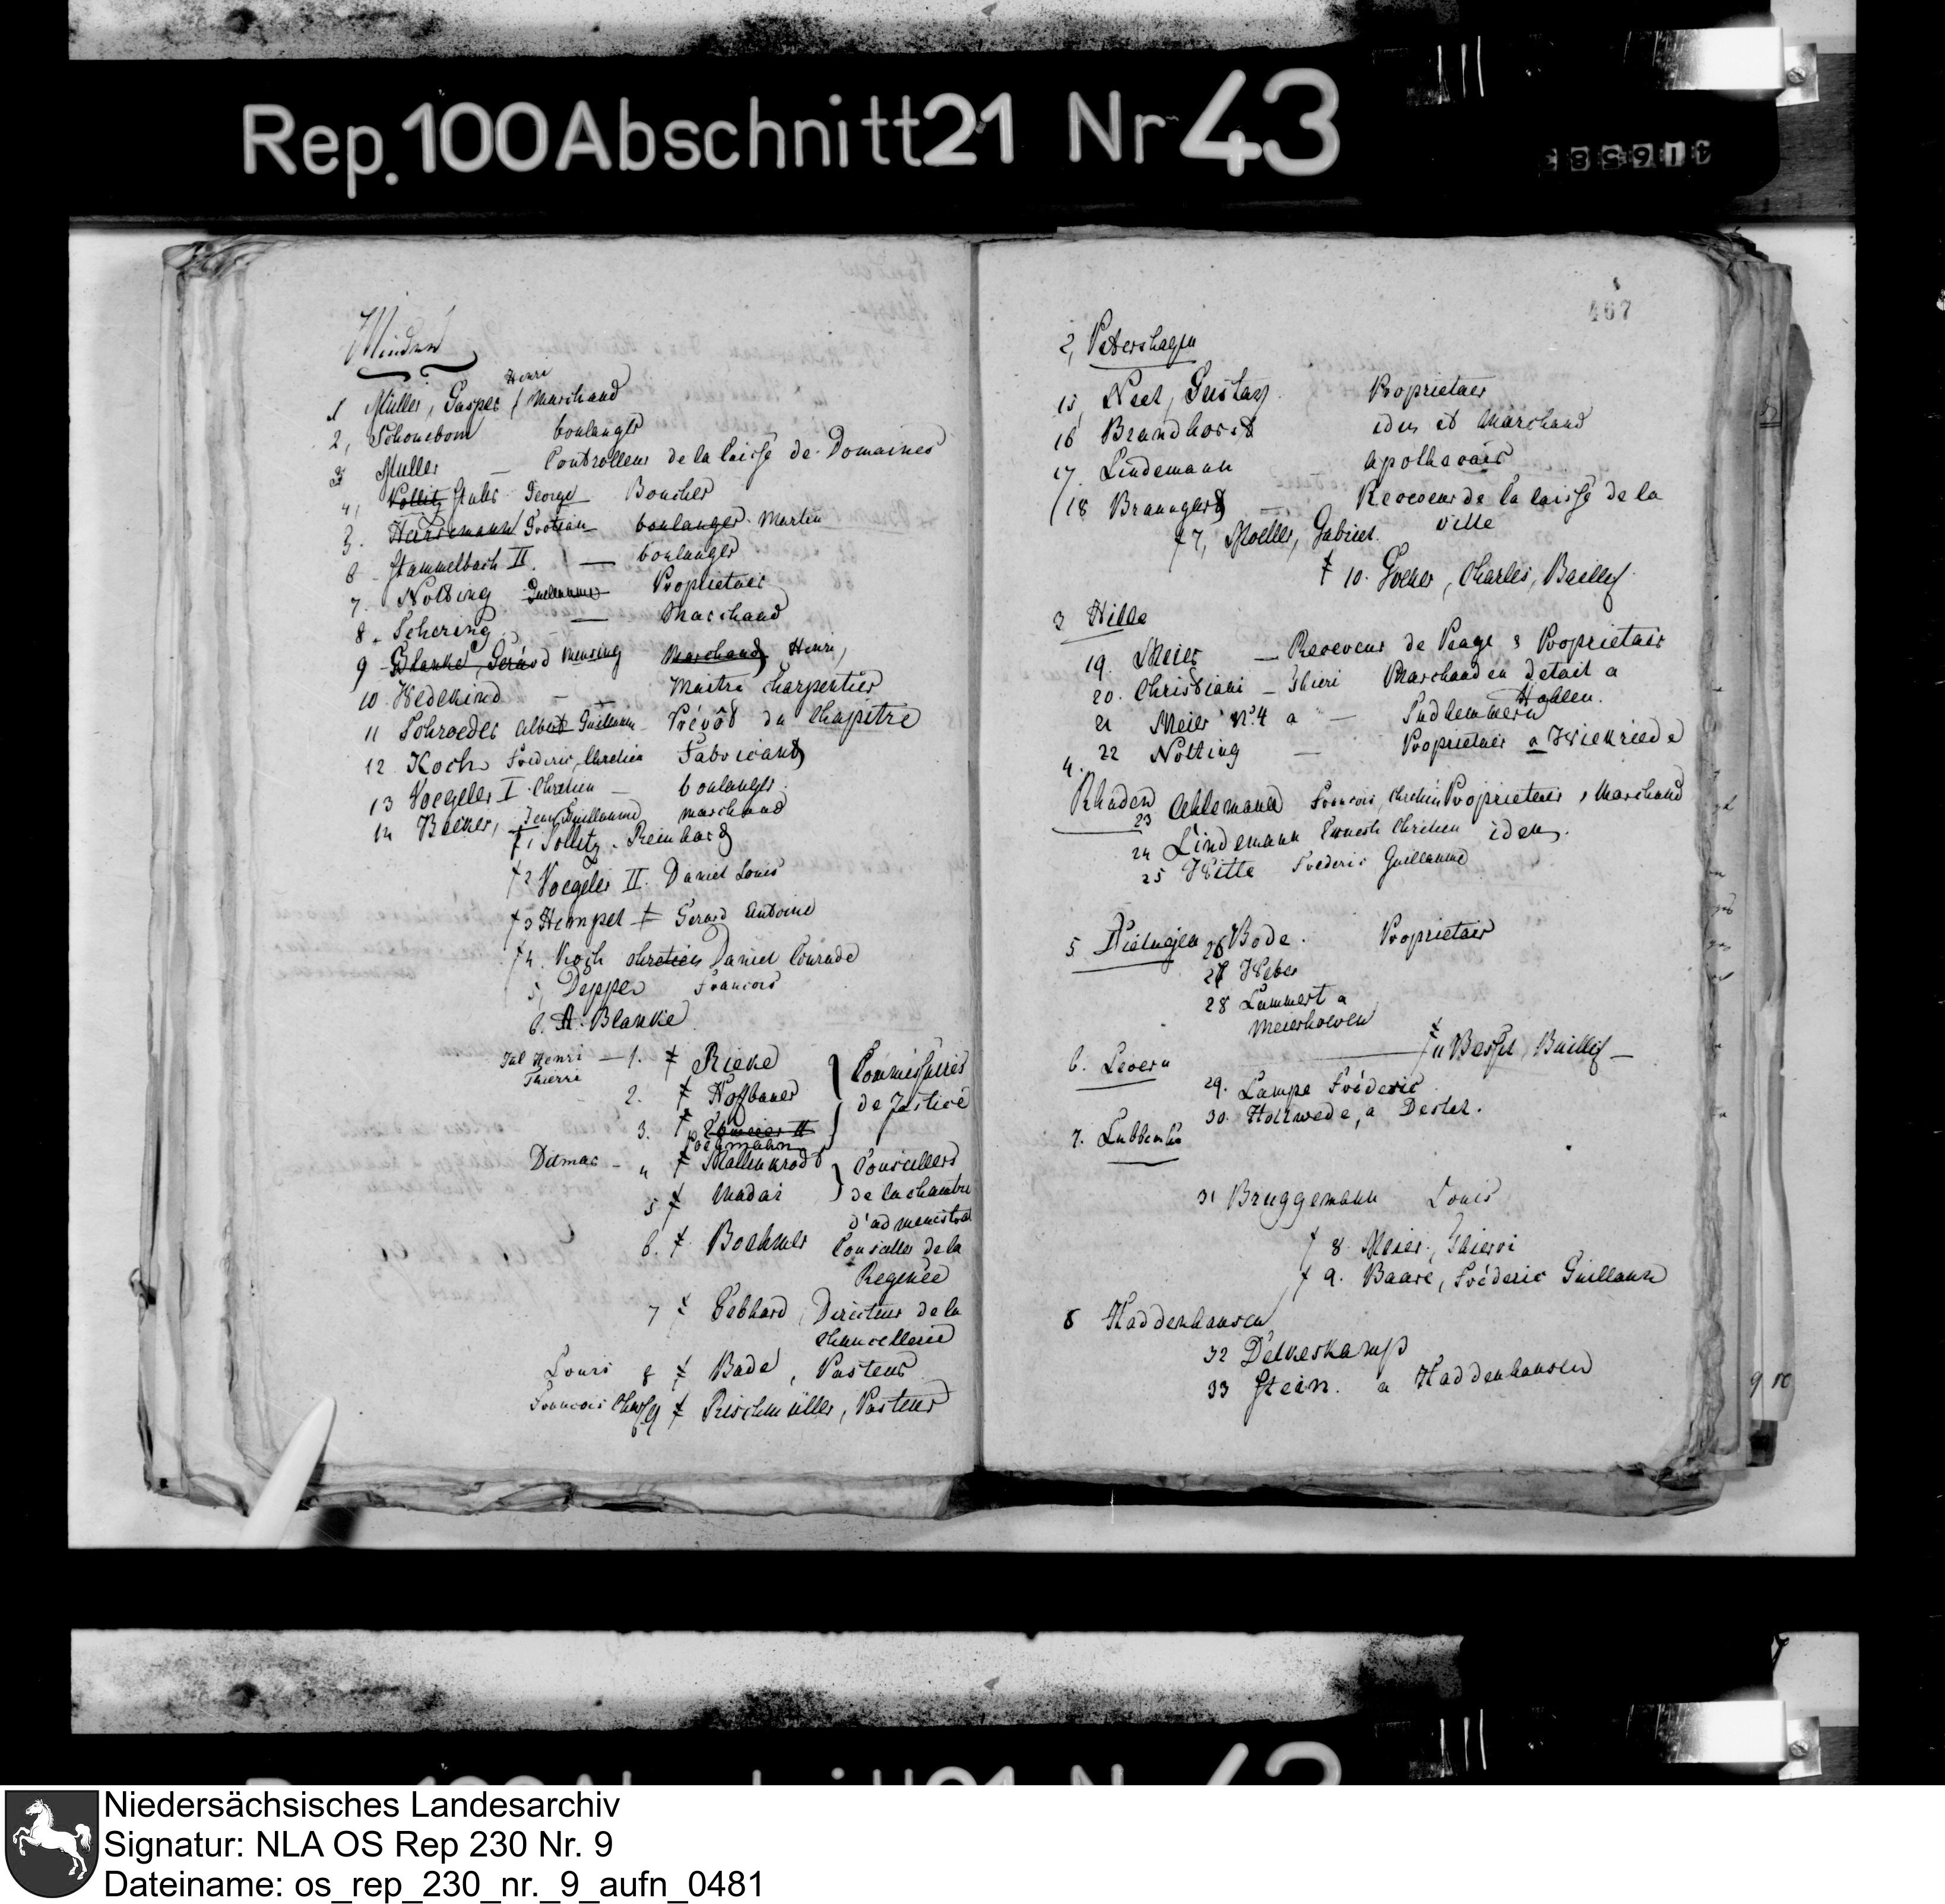 Rep. 100 Abschnitt 21 Nr 43
Minden
1 Müller, Gasper Henri Marchand
2, Schonebom boulanger
3 Muller — Controlleur de la Caisse de Domaines
4, Vollitz Stuhr George Boucher
5. Hardemann Grotian boulanger Martin
6 Stammelbach II. — boulanger
7. Nolting Guillaume Proprietair
8. Schering — Marchand
9 Blanke, Gerard Mensing Marchand Henri,
10 Wedekind — Maitre Charpentier
11 Schroeder Albert Guillaum Prévôt du Chapitre
12 Koch Frederic, Chretien Fabricant
13 Voegeler I Chretien — boulanger
14 Backer, Jean Guillaume marchand
† 1 Vollitz, Reinhard
† 2 Voegeler II. Daniel Louis
† 3 Hempel ‡ Gerard Antoine
† 4. Koch chretien Daniel Conrade
5, Depper Francois
6. A. Blanke
Henri — 1. ‡ Rieke } Commissaires
Thierri
2. ‡ Hofbauer de Justice
3. ‡ II
Poehlmahn
Detmar — 4 ‡ Mallinkrodt } Conseillers
5 ‡ Madai de la chambre
d'administrat
6. ‡ Boehmer Conseiller de la
Regence
7 ‡ Gebhard, Directeur de la
Chancellerie
Louis 8 ‡ Bade, Pasteur
Francois Charl 9 ‡ Rischmüller, Pasteur
467
2, Petershagen
15, Neel, Gustav. Proprietair
16 Brandhorst idem et Marchand
17. Lindemann — Apothecair
18 Braungard — Receveur de la Caisse de la
ville
† 7, Moeller, Gabriel.
‡ 10. Gocker, Charles, Baillif.
3 Hille
19. Meier — Receveur de Peage & Proprietair
20. Christiani — Thieri Marchand en detail a
Hahlen.
21 Meier N.4 a — Sudhemmern
22 Nolting — Proprietair a Wiekriede
4.
Rhaden
23 Ahlemann Francois, Chretien Proprietair, Marchand
24 Lindemann Ernest Chretien idem.
25 Witte Frederic Guillaume
5 Dielingen 26 Bode. Proprietair
27 Weber
28 Lammert a
Meierhoefen
6. Levern — ‡ 11 Bessel, Baillif —
29. Lampe Fréderic
30. Holzwede, a Destel.
7. Lubbecke
31 Bruggemann Louis
† 8 Meier, Thierri
† 9. Baaré, Fréderic Guillaume
8 Haddenhausen
32 Delieskamp
33 Stein. a Haddenhausen
Niedersächsisches Landesarchiv
Signatur: NLA OS Rep 230 Nr. 9
Dateiname: os_rep_230_nr._9_aufn_0481